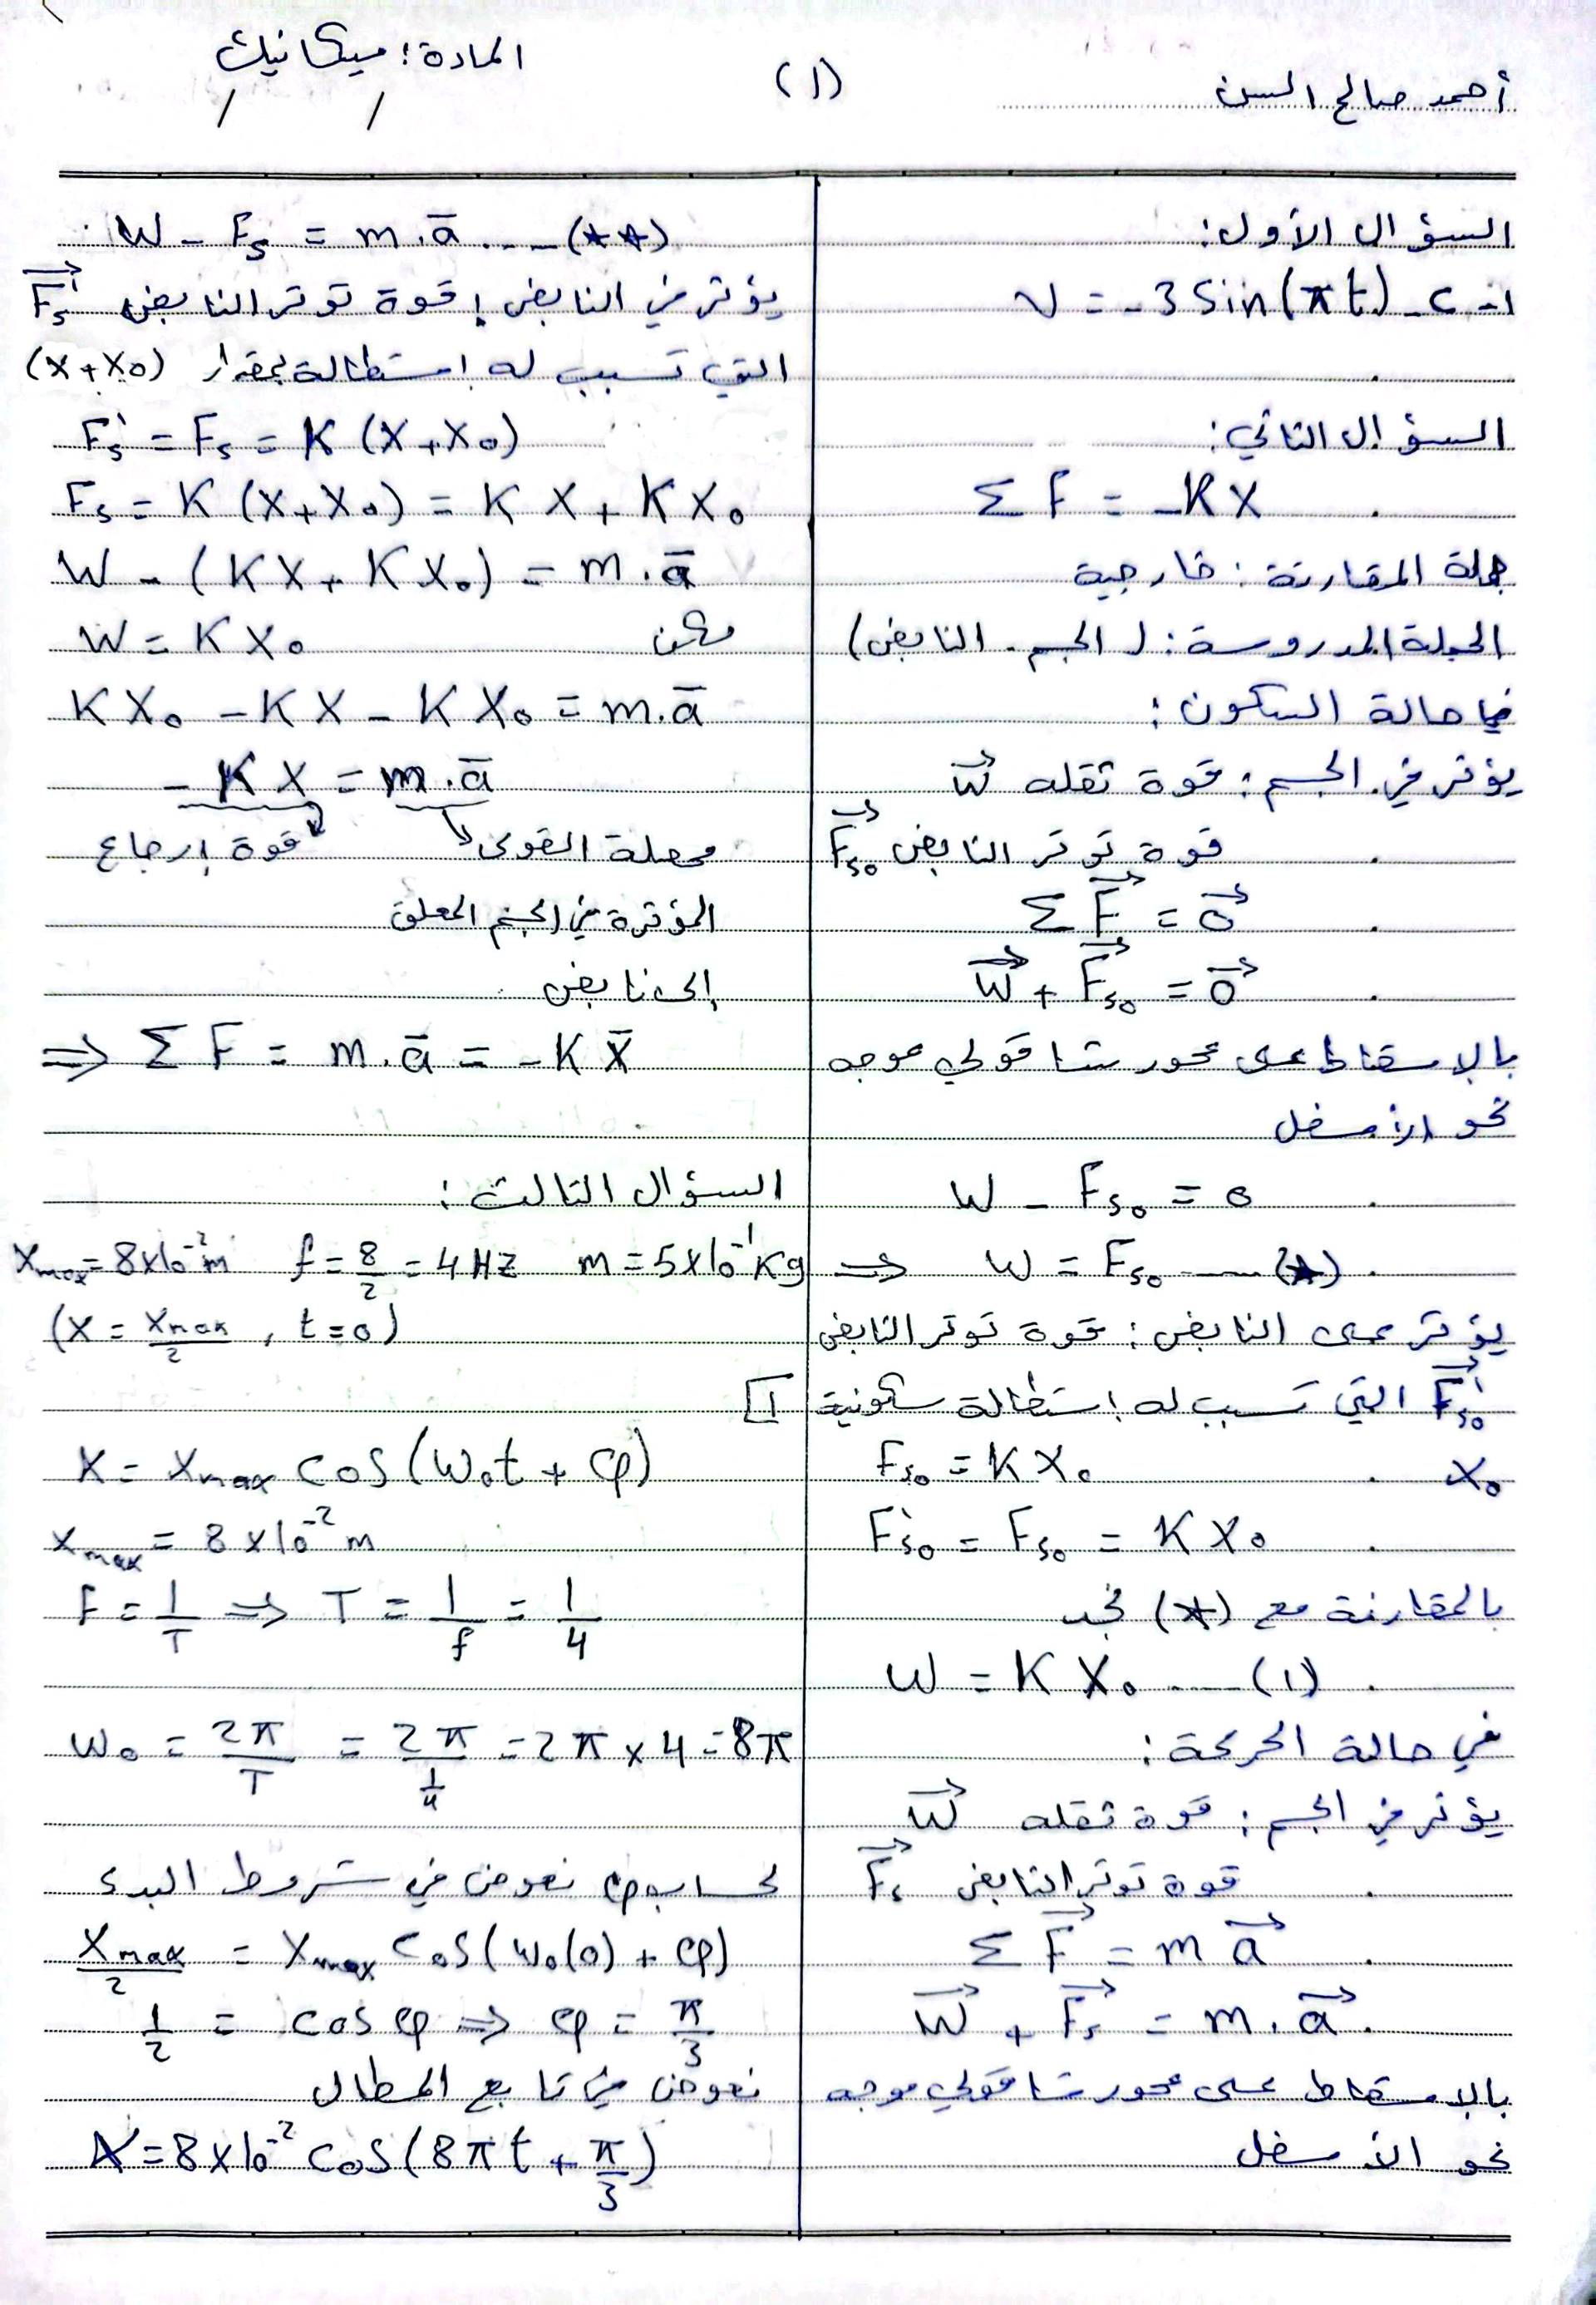 أحمد صالح السن
(1)
المادة: ميكانيك
/ /
السؤال الأول:
1- c- v = -3 sin(πt)
السؤال الثاني:
Σ F = -KX
جملة المقارنة: خارجية
الجملة المدروسة: (الجسم - النابض)
في حالة السكون:
يؤثر في الجسم: قوة ثقله W⃗
قوة توتر النابض F⃗s₀
Σ F⃗ = 0⃗
W⃗ + F⃗s₀ = 0⃗
بالإسقاط على محور شاقولي موجه
نحو الأسفل
W - Fs₀ = 0
⇒ W = Fs₀ ---- (*)
يؤثر على النابض: قوة توتر النابض
F⃗'s₀ التي تسبب له استطالة سكونية
X₀ Fs₀ = K X₀
F's₀ = Fs₀ = K X₀
بالمقارنة مع (*) نجد
W = K X₀ ---- (1)
في حالة الحركة:
يؤثر في الجسم: قوة ثقله W⃗
قوة توتر النابض F⃗s
Σ F⃗ = m a⃗
W⃗ + F⃗s = m . a⃗
بالإسقاط على محور شاقولي موجه
نحو الأسفل
W - Fs = m . a̅ --- (**)
يؤثر في النابض: قوة توتر النابض F⃗'s
التي تسبب له استطالة بمقدار (X + X₀)
F's = Fs = K (X + X₀)
Fs = K (X + X₀) = K X + K X₀
W - (K X + K X₀) = m . a̅
لكن W = K X₀
K X₀ - K X - K X₀ = m . a̅
- K X = m . a̅
محصلة القوى قوة إرجاع
المؤثرة في الجسم المعلق
إلى نابض
⇒ Σ F = m . a̅ = - K x̅
السؤال الثالث:
Xmax = 8×10⁻² m f = 8/2 = 4 Hz m = 5×10⁻¹ Kg
(X = Xmax/2 , t = 0)
1
X = Xmax cos(ω₀t + φ)
Xmax = 8×10⁻² m
f = 1/T ⇒ T = 1/f = 1/4
ω₀ = 2π/T = 2π/(1/4) = 2π × 4 = 8π
لحساب φ نعوض في شروط البدء
Xmax/2 = Xmax cos(ω₀(0) + φ)
1/2 = cos φ ⇒ φ = π/3
نعوض في تابع المطال
X = 8×10⁻² cos(8πt + π/3)